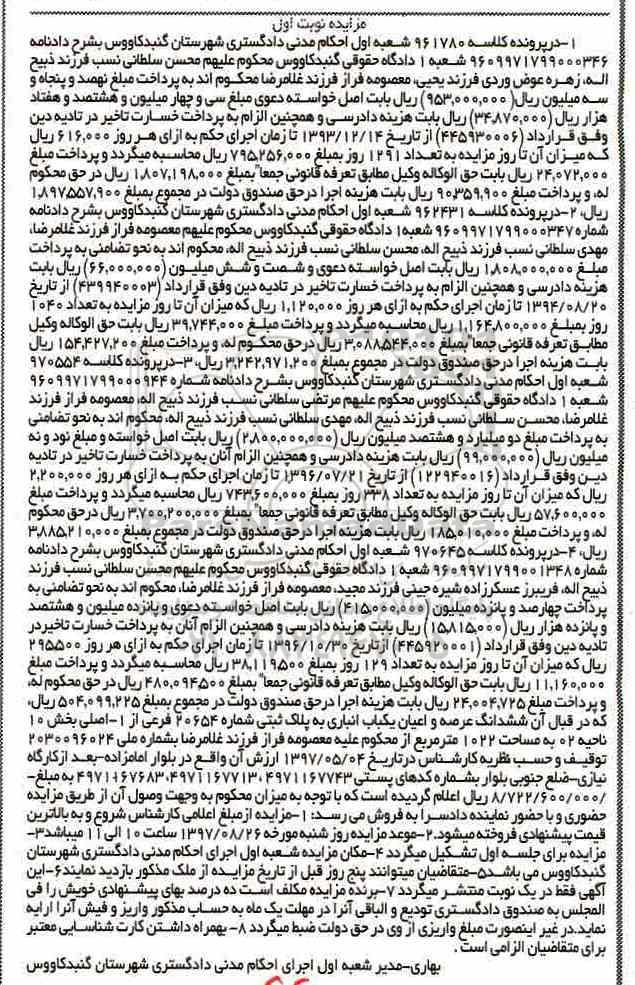 مزایده نوبت اول
۱-درپرونده کلاسه ۹۶۱۷۸۰ شعبه اول احکام مدنی دادگستری شهرستان گنبدکاووس بشرح دادنامه
۹۶۰۹۹۷۱۷۹۹۰۰۰۳۴۶ شعبه ۱ دادگاه حقوقی گنبدکاووس محکوم علیهم محسن سلطانی نسب فرزند ذبیح
اله، زهره عوض وردی فرزند یحیی، معصومه فراز فرزند غلامرضا محکوم اند به پرداخت مبلغ نهصد و پنجاه و
سه میلیون ریال( ۹۵۳,۰۰۰,۰۰۰) ریال بابت اصل خواسته دعوی مبلغ سی و چهار میلیون و هشتصد و هفتاد
هزار ریال(۳۴,۸۷۰,۰۰۰) ریال بابت هزینه دادرسی و همچنین الزام به پرداخت خسارت تاخیر در تادیه دین
وفق قرارداد (۴۴۵۹۳۰۰۰۶) از تاریخ ۱۳۹۳/۱۲/۱۴ تا زمان اجرای حکم به ازای هر روز ۶۱۶,۰۰۰ ریال
که میزان آن تا روز مزایده به تعداد ۱۲۹۱ روز بمبلغ ۷۹۵,۲۵۶,۰۰۰ ریال محاسبه میگردد و پرداخت مبلغ
۲۴,۰۷۲,۰۰۰ ریال بابت حق الوکاله وکیل مطابق تعرفه قانونی جمعا" بمبلغ ۱,۸۰۷,۱۹۸,۰۰۰ ریال در حق محکوم
له، و پرداخت مبلغ ۹۰,۳۵۹,۹۰۰ ریال بابت هزینه اجرا درحق صندوق دولت در مجموع بمبلغ ۱,۸۹۷,۵۵۷,۹۰۰
ریال، ۲-درپرونده کلاسه ۹۶۲۴۳۱ شعبه اول احکام مدنی دادگستری شهرستان گنبدکاووس بشرح دادنامه
شماره ۹۶۰۹۹۷۱۷۹۹۰۰۰۳۴۷ شعبه۱ دادگاه حقوقی گنبدکاووس محکوم علیهم معصومه فراز فرزند غلامرضا،
مهدی سلطانی نسب فرزند ذبیح اله، محسن سلطانی نسب فرزند ذبیح اله، محکوم اند به نحو تضامنی به پرداخت
مبلغ ۱,۸۰۸,۰۰۰,۰۰۰ ریال بابت اصل خواسته دعوی و شصت و شش میلیون (۶۶,۰۰۰,۰۰۰) ریال بابت
هزینه دادرسی و همچنین الزام به پرداخت خسارت تاخیر در تادیه دین وفق قرارداد (۴۳۹۹۴۰۰۰۳) از تاریخ
۱۳۹۴/۰۸/۲۰ تا زمان اجرای حکم به ازای هر روز ۱,۱۲۰,۰۰۰ ریال که میزان آن تا روز مزایده به تعداد ۱۰۴۰
روز بمبلغ ۱,۱۶۴,۸۰۰,۰۰۰ ریال محاسبه میگردد و پرداخت مبلغ ۳۹,۷۴۴,۰۰۰ ریال بابت حق الوکاله وکیل
مطابق تعرفه قانونی جمعا" بمبلغ ۳,۰۸۸,۵۴۴,۰۰۰ ریال درحق محکوم له، و پرداخت مبلغ ۱۵۴,۴۲۷,۲۰۰ ریال
بابت هزینه اجرا درحق صندوق دولت در مجموع بمبلغ ۳,۲۴۲,۹۷۱,۲۰۰ ریال، ۳-درپرونده کلاسه ۹۷۰۵۵۴
شعبه اول احکام مدنی دادگستری شهرستان گنبدکاووس بشرح دادنامه شماره ۹۶۰۹۹۷۱۷۹۹۰۰۰۹۴۴
شعبه ۱ دادگاه حقوقی گنبدکاووس محکوم علیهم مرتضی سلطانی نسب فرزند ذبیح اله، معصومه فراز فرزند
غلامرضا، محسن سلطانی نسب فرزند ذبیح اله، مهدی سلطانی نسب فرزند ذبیح اله، محکوم اند به نحو تضامنی
به پرداخت مبلغ دو میلیارد و هشتصد میلیون ریال (۲,۸۰۰,۰۰۰,۰۰۰) ریال بابت اصل خواسته و مبلغ نود و نه
میلیون ریال (۹۹,۰۰۰,۰۰۰) ریال بابت هزینه دادرسی و همچنین الزام آنان به پرداخت خسارت تاخیر در تادیه
دین وفق قرارداد(۱۲۲۹۴۰۰۱۶) از تاریخ ۱۳۹۶/۰۷/۲۱ تا زمان اجرای حکم به ازای هر روز ۲,۲۰۰,۰۰۰
ریال که میزان آن تا روز مزایده به تعداد ۳۳۸ روز بمبلغ ۷۴۳,۶۰۰,۰۰۰ ریال محاسبه میگردد و پرداخت مبلغ
۵۷,۶۰۰,۰۰۰ ریال بابت حق الوکاله وکیل مطابق تعرفه قانونی جمعا" بمبلغ ۳,۷۰۰,۲۰۰,۰۰۰ ریال درحق محکوم
له، و پرداخت مبلغ ۱۸۵,۰۱۰,۰۰۰ ریال بابت هزینه اجرا درحق صندوق دولت در مجموع بمبلغ ۳,۸۸۵,۲۱۰,۰۰۰
ریال، ۴-درپرونده کلاسه ۹۷۰۶۴۵ شعبه اول احکام مدنی دادگستری شهرستان گنبدکاووس بشرح دادنامه
شماره ۹۶۰۹۹۷۱۷۹۹۰۰۱۳۴۸ شعبه ۱ دادگاه حقوقی گنبدکاووس محکوم علیهم محسن سلطانی نسب فرزند
ذبیح اله، فریبرز عسکرزاده شیره جینی فرزند مجید، معصومه فراز فرزند غلامرضا، محکوم اند به نحو تضامنی به
پرداخت چهارصد و پانزده میلیون (۴۱۵,۰۰۰,۰۰۰) ریال بابت اصل خواسته دعوی و پانزده میلیون و هشتصد
و پانزده هزار ریال (۱۵,۸۱۵,۰۰۰) ریال بابت هزینه دادرسی و همچنین الزام آنان به پرداخت خسارت تاخیردر
تادیه دین وفق قرارداد (۴۴۵۹۲۰۰۰۱) ازتاریخ ۱۳۹۶/۱۰/۳۰ تا زمان اجرای حکم به ازای هر روز ۲۹۵,۵۰۰
ریال که میزان آن تا روز مزایده به تعداد ۱۲۹ روز بمبلغ ۳۸,۱۱۹,۵۰۰ ریال محاسبه میگردد و پرداخت مبلغ
۱۱,۱۶۰,۰۰۰ ریال بابت حق الوکاله وکیل مطابق تعرفه قانونی جمعا" بمبلغ ۴۸۰,۰۹۴,۵۰۰ ریال در حق محکوم له،
و پرداخت مبلغ ۲۴,۰۰۴,۷۲۵ ریال بابت هزینه اجرا درحق صندوق دولت در مجموع بمبلغ ۵۰۴,۰۹۹,۲۲۵ ریال،
که در قبال آن ششدانگ عرصه و اعیان یکباب انباری به پلاک ثبتی شماره ۲۰۶۵۴ فرعی از ۱-اصلی بخش ۱۰
ناحیه ۰۲ به مساحت ۱۰۲۲ مترمربع از محکوم علیه معصومه فراز فرزند غلامرضا بشماره ملی ۲۰۳۰۰۹۶۰۲۴
توقیف و حسب نظریه کارشناس درتاریخ ۱۳۹۷/۰۵/۰۴ ارزش آن واقع در بلوار امامزاده-بعد ازکارگاه
نیازی-ضلع جنوبی بلوار بشماره کدهای پستی ۴۹۷۱۱۶۷۷۴۳ ،۴۹۷۱۱۶۷۷۱۳ ،۴۹۷۱۴۶۷۶۸۳ به مبلغ-
/۸/۷۲۲/۶۰۰/۰۰۰ ریال اعلام گردیده است که با توجه به میزان محکوم به وجهت وصول آن از طریق مزایده
حضوری و با حضور نماینده دادسرا به فروش می رسد: ۱-مزایده ازمبلغ اعلامی کارشناس شروع و به بالاترین
قیمت پیشنهادی فروخته میشود.۲-موعد مزایده روز شنبه مورخه ۱۳۹۷/۰۸/۲۶ ساعت ۱۰ الی ۱۱ میباشد۳-
مزایده برای جلسه اول تشکیل میگردد ۴-مکان مزایده شعبه اول اجرای احکام مدنی دادگستری شهرستان
گنبدکاووس می باشد۵-متقاضیان میتوانند پنج روز قبل از تاریخ مزایده از ملک مذکور بازدید نمایند۶-این
آگهی فقط در یک نوبت منتشر میگردد ۷-برنده مزایده مکلف است ده درصد بهای پیشنهادی خویش را فی
المجلس به صندوق دادگستری تودیع و الباقی آنرا در مهلت یک ماه به حساب مذکور واریز و فیش آنرا ارایه
نماید.در غیر اینصورت مبلغ واریزی از وی در حق دولت ضبط میگردد ۸- بهمراه داشتن کارت شناسایی معتبر
برای متقاضیان الزامی است .
بهاری-مدیر شعبه اول اجرای احکام مدنی دادگستری شهرستان گنبدکاووس